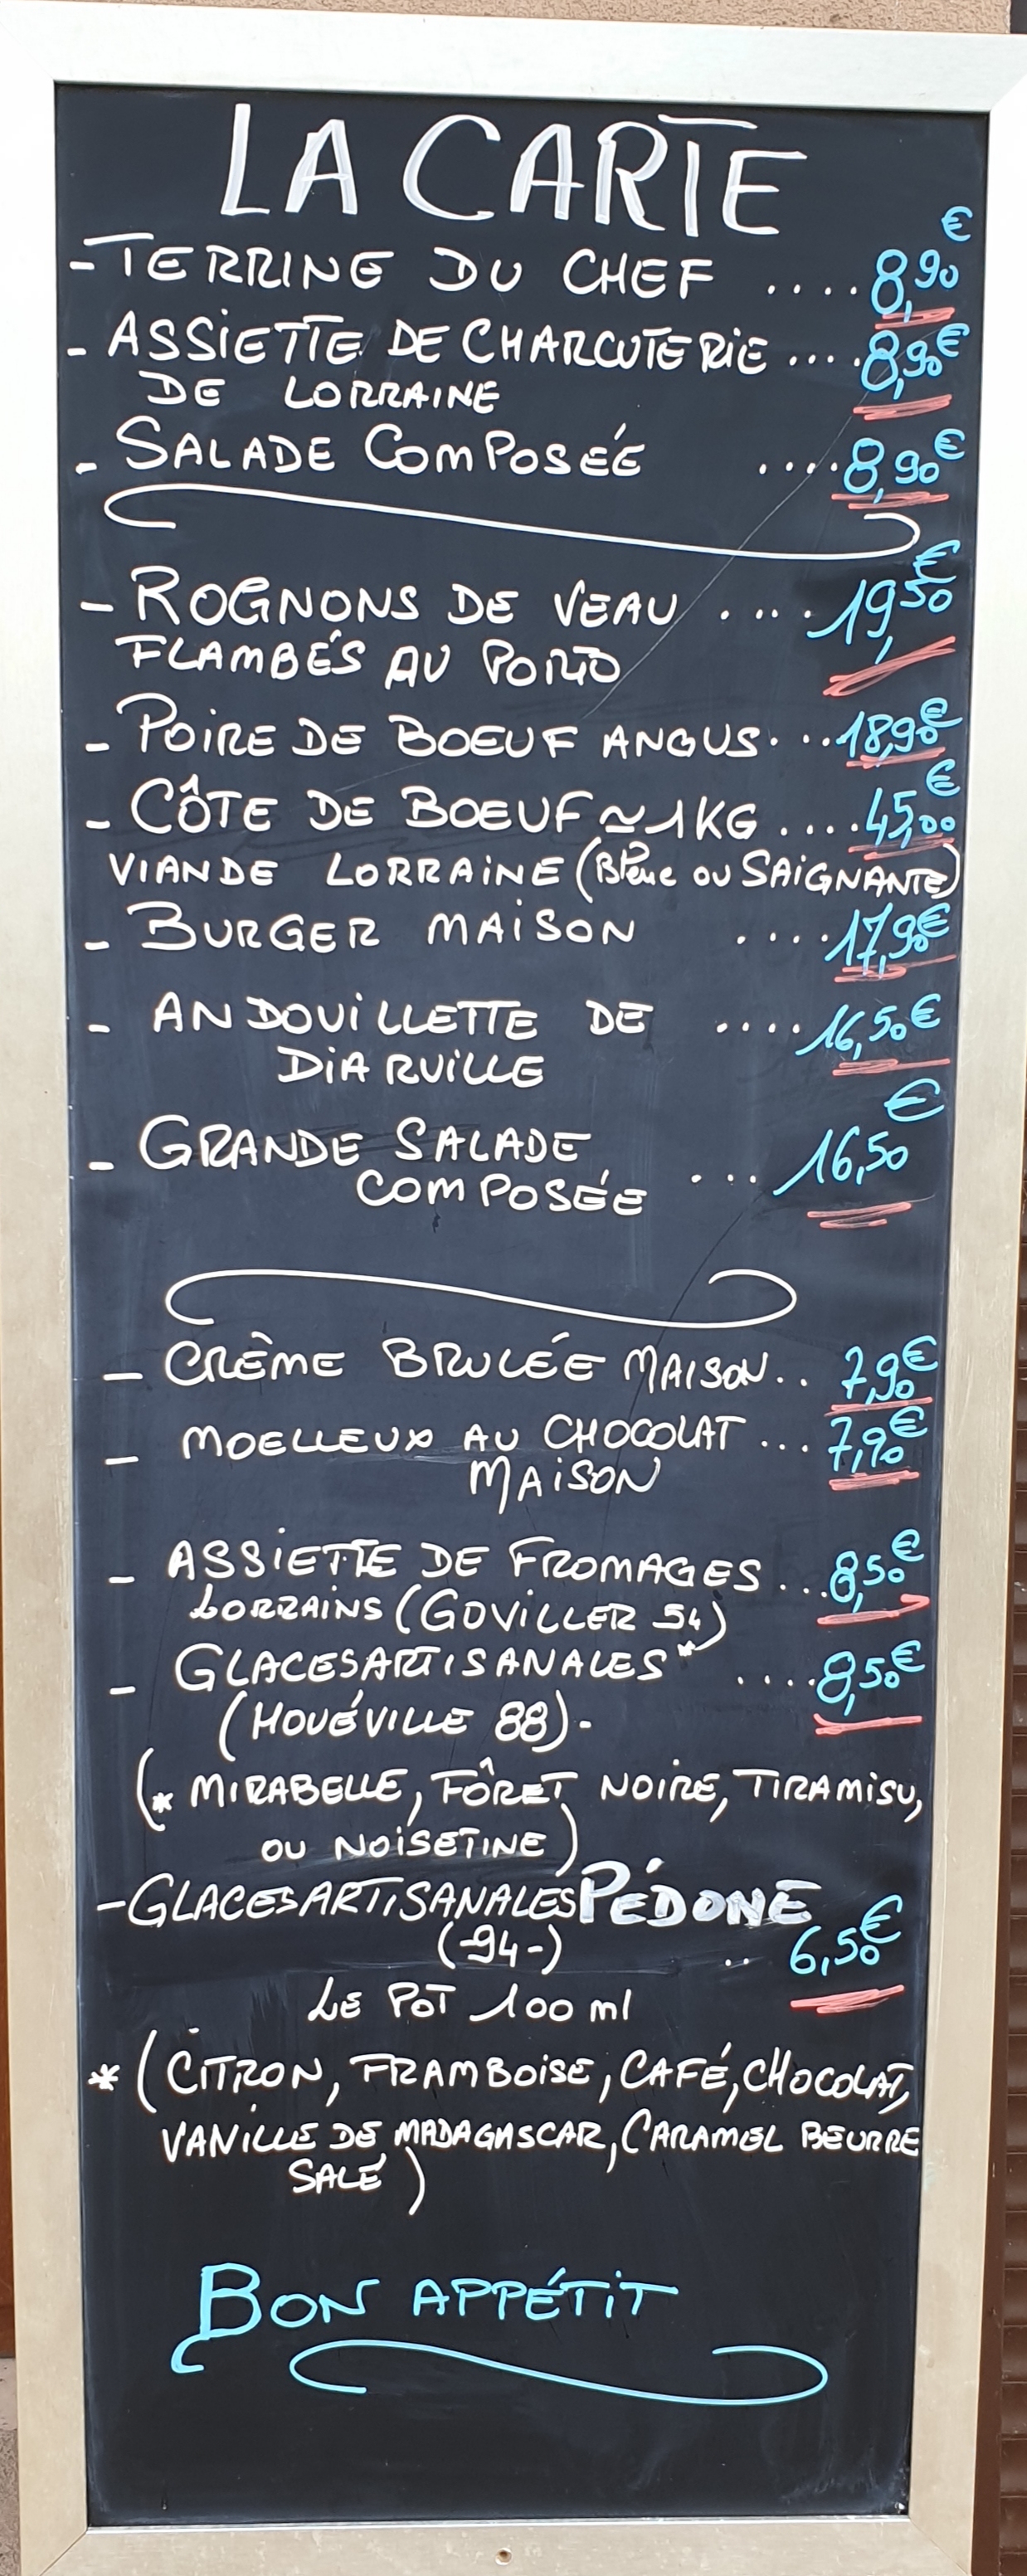 LA CARTE
- TERRINE DU CHEF .... 8,90 €
- ASSIETTE DE CHARCUTERIE .... 8,90 €
DE LORRAINE
- SALADE COMPOSÉE .... 8,90 €
- ROGNONS DE VEAU .... 19,50 €
FLAMBÉS AU PORTO
- POIRE DE BOEUF ANGUS ... 18,90 €
- CÔTE DE BOEUF ≃ 1KG .... 45,00 €
VIANDE LORRAINE (Bleue ou SAIGNANTE)
- BURGER MAISON .... 17,90 €
- ANDOUILLETTE DE .... 16,50 €
DIARVILLE
- GRANDE SALADE
COMPOSÉE ... 16,50 €
- CRÈME BRULÉE MAISON .. 7,90 €
- MOELLEUX AU CHOCOLAT ... 7,90 €
MAISON
- ASSIETTE DE FROMAGES ... 8,50 €
LORRAINS (GOVILLER 54)
- GLACES ARTISANALES* .... 8,50 €
(HOUÉVILLE 88).
(* MIRABELLE, FÔRET NOIRE, TIRAMISU,
OU NOISETINE)
- GLACES ARTISANALES PÉDONE
(-94-) .. 6,50 €
LE POT 100 ml
* (CITRON, FRAMBOISE, CAFÉ, CHOCOLAT,
VANILLE DE MADAGASCAR, CARAMEL BEURRE
SALÉ)
BON APPÉTIT